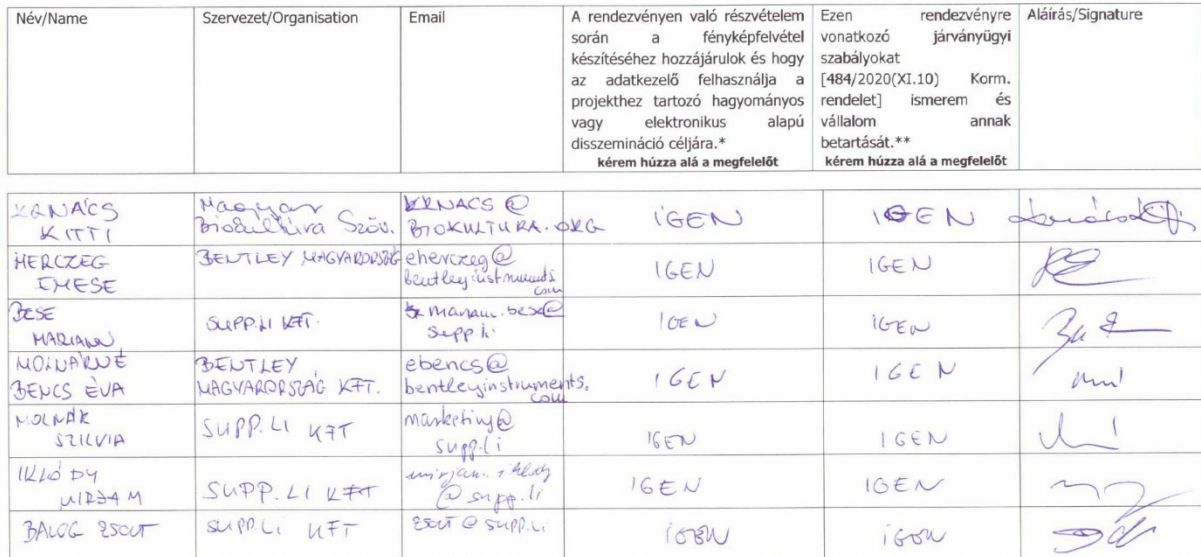 Név/Name
Szervezet/Organisation
Email
A rendezvényen való részvételem
során a fényképfelvétel
készítéséhez hozzájárulok és hogy
az adatkezelő felhasználja a
projekthez tartozó hagyományos
vagy elektronikus alapú
disszemináció céljára.*
kérem húzza alá a megfelelőt
Ezen rendezvényre
vonatkozó járványügyi
szabályokat
[484/2020(XI.10) Korm.
rendelet] ismerem és
vállalom annak
betartását.**
kérem húzza alá a megfelelőt
Aláírás/Signature
KRNÁCS
KITTI
Magyar
Biokultúra Szöv.
KRNACS@
BIOKULTURA.ORG
IGEN
IGEN
HERCZEG
EMESE
BENTLEY MAGYARORSZÁG
eherczeg@
bentleyinstruments
com
IGEN
IGEN
BESE
MARIANN
SUPP.LI KFT.
mariann.bese@
supp.li
IGEN
IGEN
MOLNÁRNÉ
BENCS ÉVA
BENTLEY
MAGYARORSZÁG KFT.
ebencs@
bentleyinstruments.
com
IGEN
IGEN
MOLNÁR
SZILVIA
SUPP.LI KFT
marketing@
supp.li
IGEN
IGEN
IKLÓDY
MIRJAM
SUPP.LI KFT
mirjam.iklody
@supp.li
IGEN
IGEN
BALOG ZSOLT
SUPP.LI KFT
ZSOLT@SUPP.LI
IGEN
IGEN